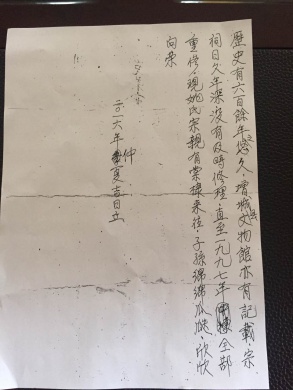 歷史有六百餘年悠久之，增城文物館亦有記載宗
祠日久年深沒有及時修理，直至一九九七年全部
重修，現姚氏宗親有棠樟來往，子孫綿綿瓜瓞，欣欣
向荣
二〇一六年仲夏吉日立